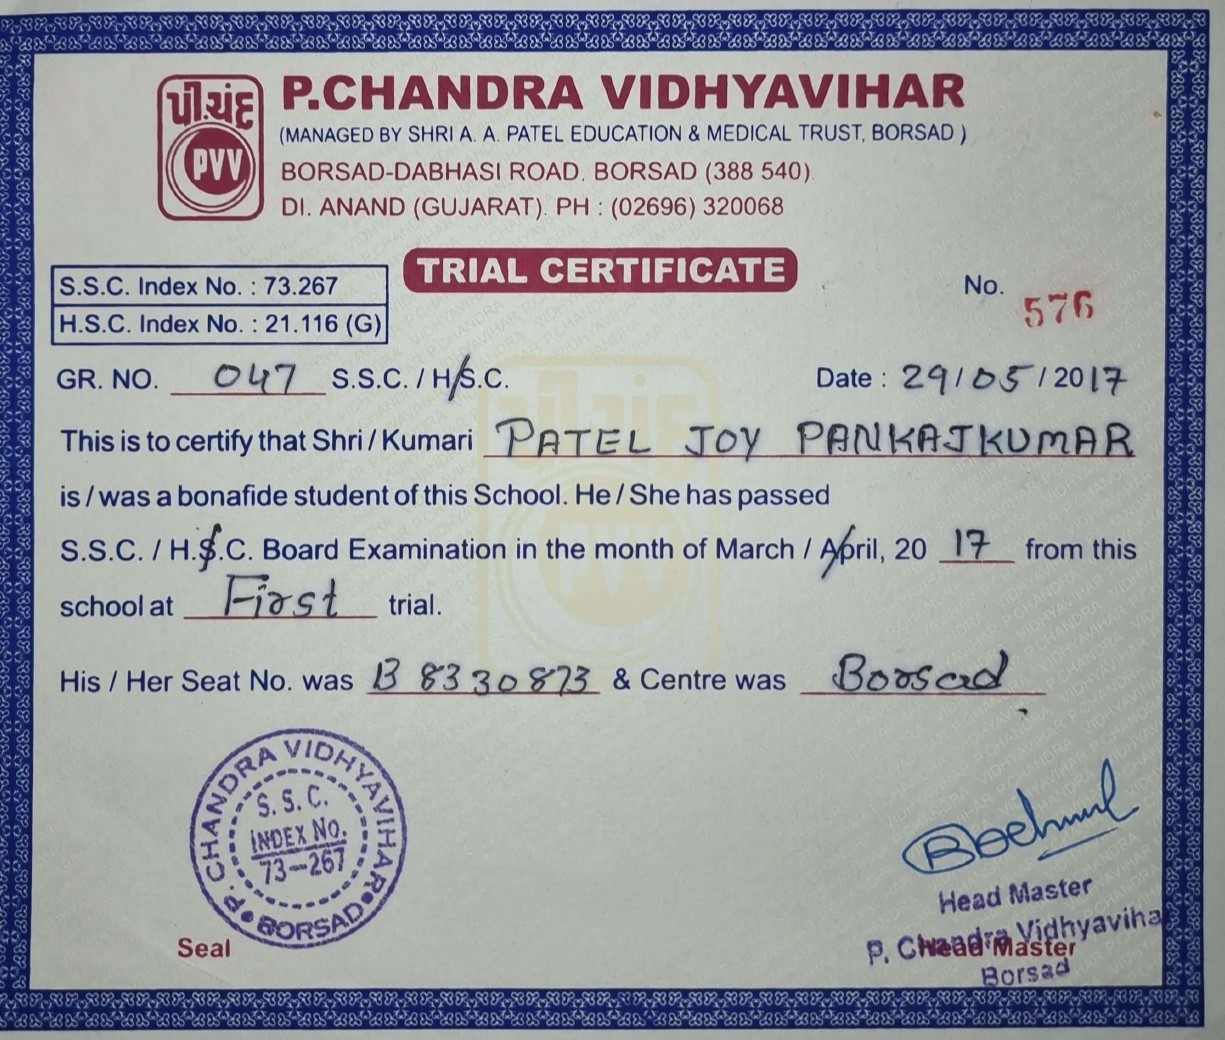 પી.ચંદ્ર
PVV
P.CHANDRA VIDHYAVIHAR
(MANAGED BY SHRI A. A. PATEL EDUCATION & MEDICAL TRUST, BORSAD )
BORSAD-DABHASI ROAD, BORSAD (388 540)
DI. ANAND (GUJARAT). PH : (02696) 320068
TRIAL CERTIFICATE
S.S.C. Index No. : 73.267
H.S.C. Index No. : 21.116 (G)
No. 576
GR. NO. 047 S.S.C. / H.S.C. Date : 29/05/2017
This is to certify that Shri / Kumari PATEL JOY PANKAJKUMAR
is / was a bonafide student of this School. He / She has passed
S.S.C. / H.S.C. Board Examination in the month of March / April, 20 17 from this
school at First trial.
His / Her Seat No. was B 8330873 & Centre was Borsad
P. CHANDRA VIDHYAVIHAR
S. S. C.
INDEX NO.
73-267
BORSAD
Seal
Head Master
P. Chandra Vidhyaviha
Head Master
Borsad